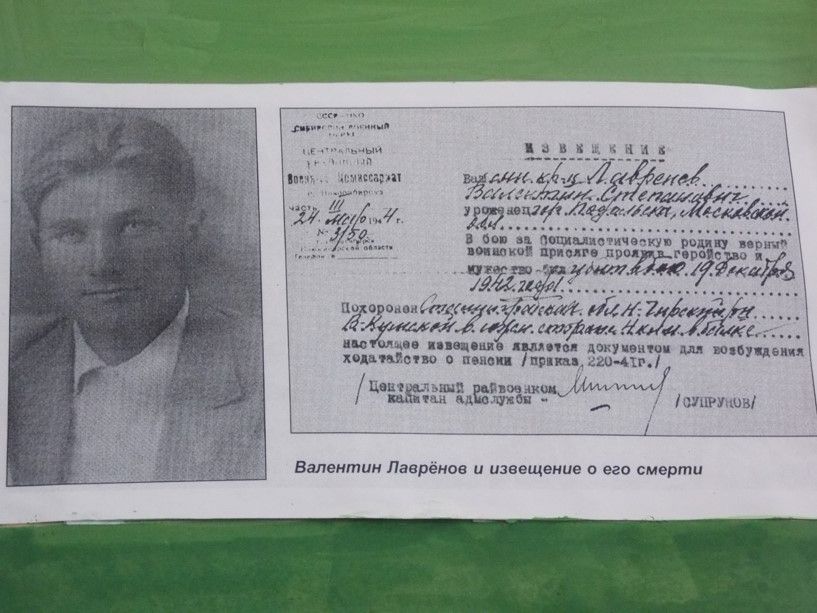 СССР – НКО
СИБИРСКИЙ ВОЕННЫЙ
ОКРУГ
ЦЕНТРАЛЬНЫЙ
РАЙОННЫЙ
Военный Комиссариат
г. Новосибирска
часть III
24 мая 1944 г.
№ 3/50
ИЗВЕЩЕНИЕ
Ваш сын кр-ц Лавренев
Валентин Степанович
уроженец гор. Подольска, Московской
обл.
В бою за Социалистическую родину верный
воинской присяге проявив геройство и
мужество был убит в бою 19 декабря
1942 года
Похоронен Сталинградская обл. Н-Чирский р-н
настоящее извещение является документом для возбуждения
ходатайство о пенсии /приказ 220-41г./
/ Центральный райвоенком
капитан адмслужбы – /СУПРУНОВ/
Валентин Лаврёнов и извещение о его смерти